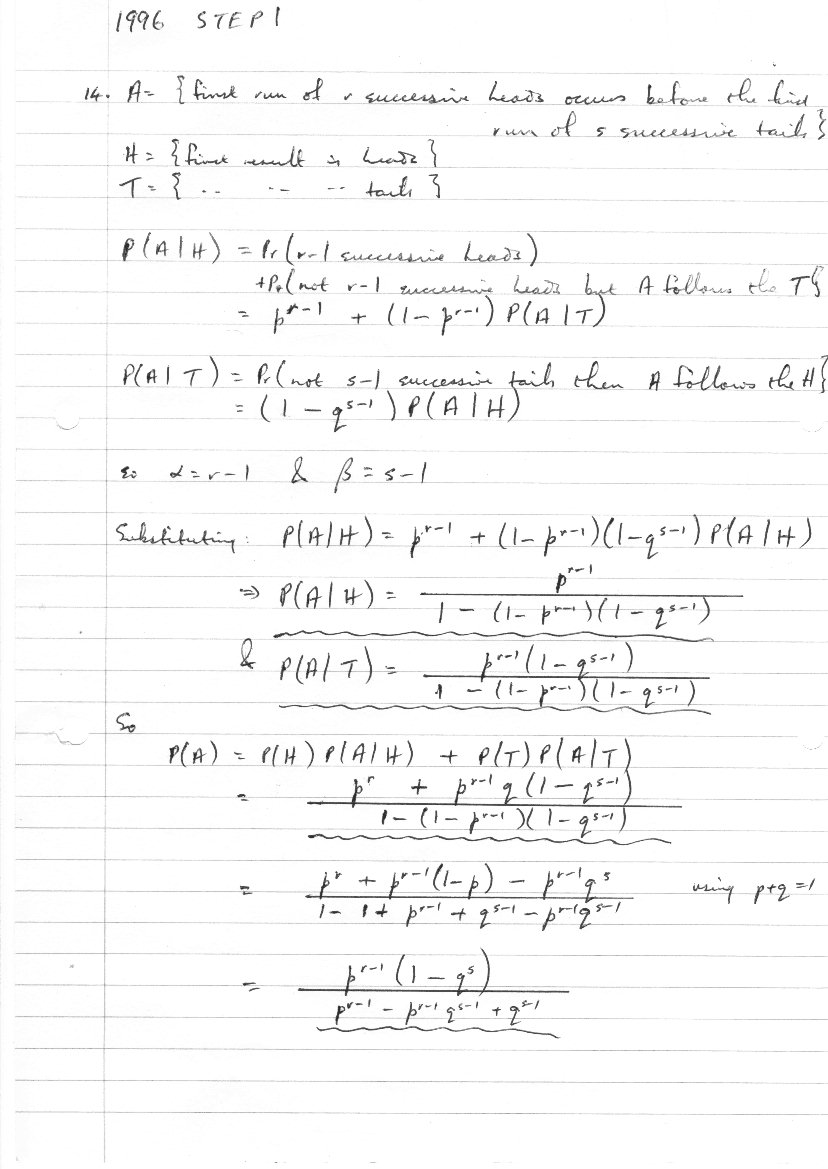 1996 STEP I
14. A = { first run of r successive heads occurs before the first
run of s successive tails }
H = { first result is heads }
T = { .. -- -- tails }
P(A|H) = Pr (r-1 successive heads)
+Pr (not r-1 successive heads but A follows the T}
= p^{r-1} + (1 - p^{r-1}) P(A|T)
P(A|T) = Pr (not s-1 successive tails then A follows the H}
= (1 - q^{s-1}) P(A|H)
So α = r-1 & β = s-1
Substituting: P(A|H) = p^{r-1} + (1 - p^{r-1})(1 - q^{s-1}) P(A|H)
⇒ P(A|H) = p^{r-1} / (1 - (1 - p^{r-1})(1 - q^{s-1}))
& P(A|T) = p^{r-1}(1 - q^{s-1}) / (1 - (1 - p^{r-1})(1 - q^{s-1}))
So
P(A) = P(H) P(A|H) + P(T) P(A|T)
= (p^r + p^{r-1} q (1 - q^{s-1})) / (1 - (1 - p^{r-1})(1 - q^{s-1}))
= (p^r + p^{r-1}(1-p) - p^{r-1} q^s) / (1 - 1 + p^{r-1} + q^{s-1} - p^{r-1} q^{s-1}) using p+q=1
= p^{r-1}(1 - q^s) / (p^{r-1} - p^{r-1} q^{s-1} + q^{s-1})